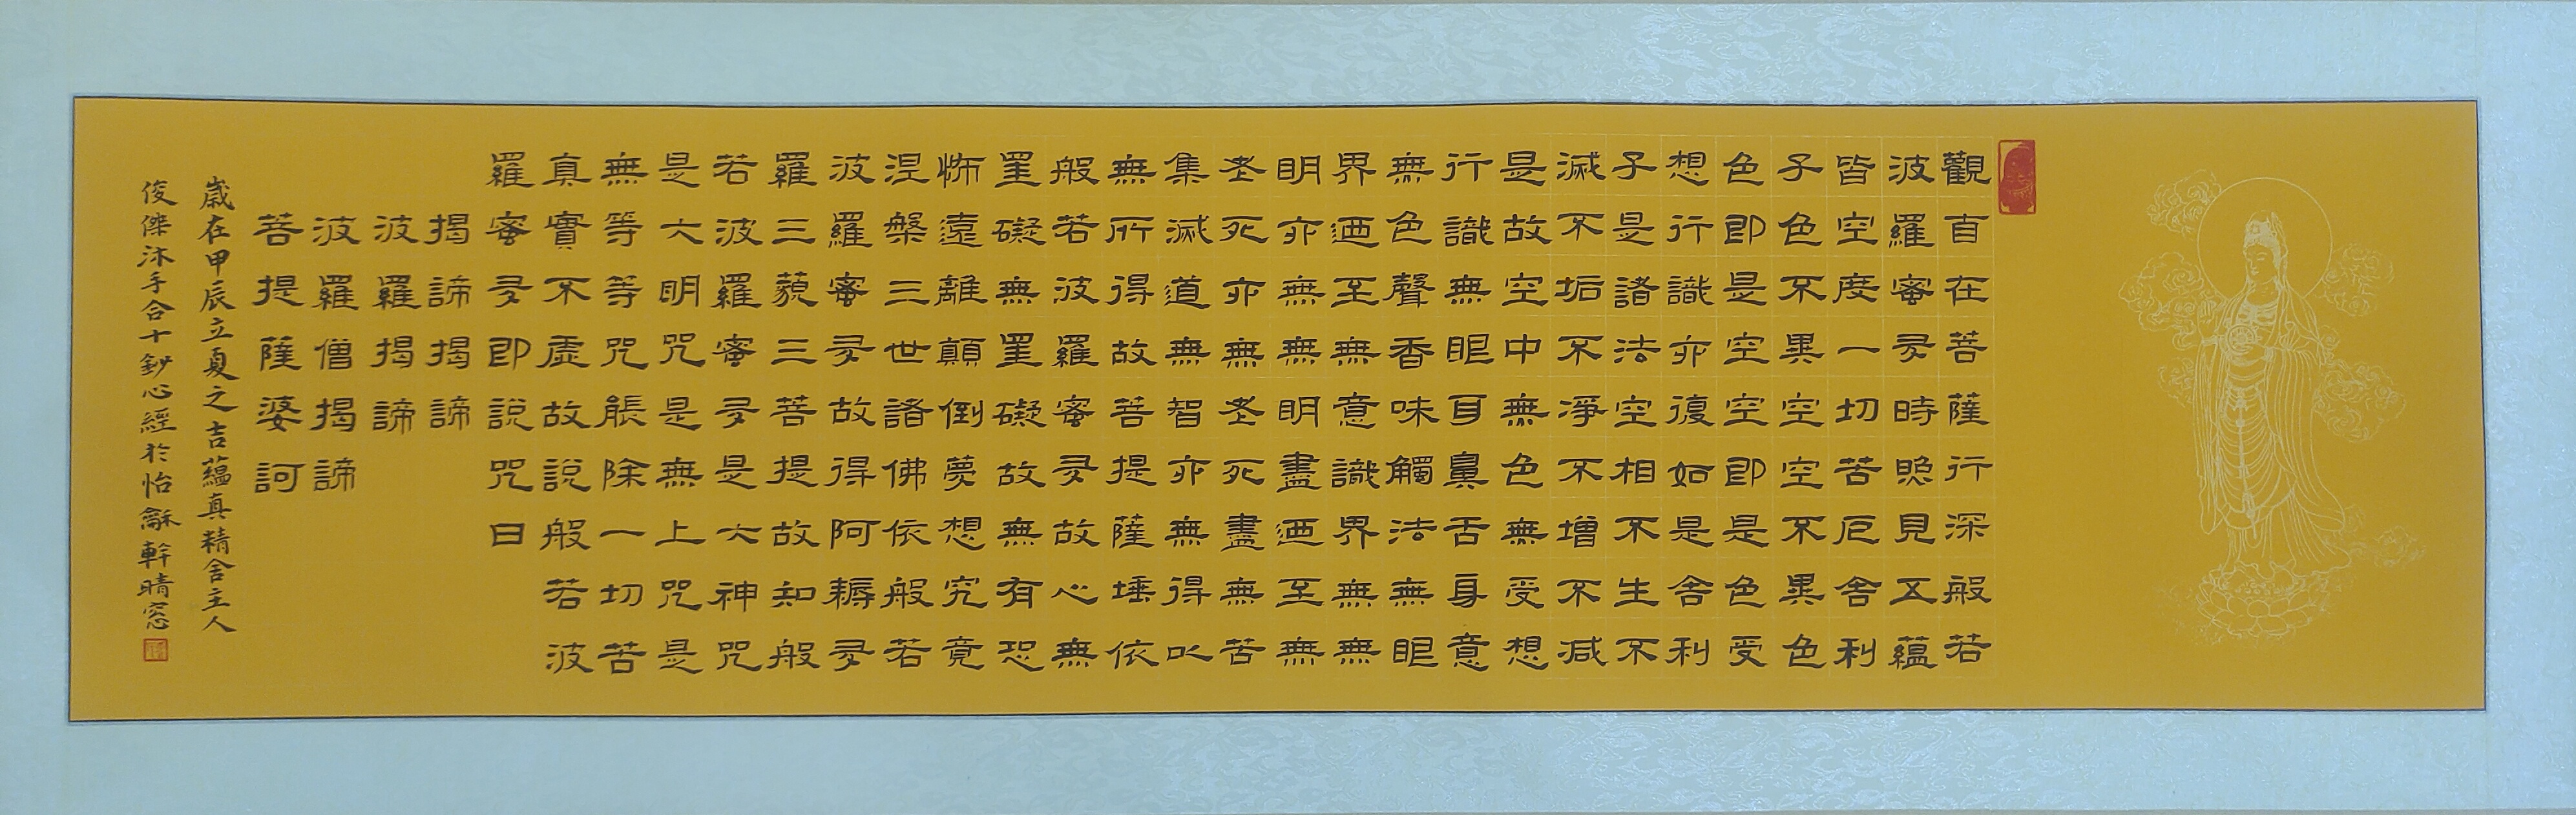 觀自在菩薩行深般若
波羅蜜多時照見五蘊
皆空度一切苦厄舍利
子色不異空空不異色
色即是空空即是色受
想行識亦復如是舍利
子是諸法空相不生不
滅不垢不淨不增不減
是故空中無色無受想
行識無眼耳鼻舌身意
無色聲香味觸法無眼
界迺至無意識界無無
明亦無無明盡迺至無
老死亦無老死盡無苦
集滅道無智亦無得以
無所得故菩提薩埵依
般若波羅蜜多故心無
罣礙無罣礙故無有恐
怖遠離顛倒夢想究竟
涅槃三世諸佛依般若
波羅蜜多故得阿耨多
羅三藐三菩提故知般
若波羅蜜多是大神咒
是大明咒是無上咒是
無等等咒能除一切苦
真實不虛故說般若波
羅蜜多即說咒曰
揭諦揭諦
波羅揭諦
波羅僧揭諦
菩提薩婆訶
歲在甲辰立夏之吉蘊真精舍主人
俊傑沐手合十鈔心經於怡龢軒晴窓